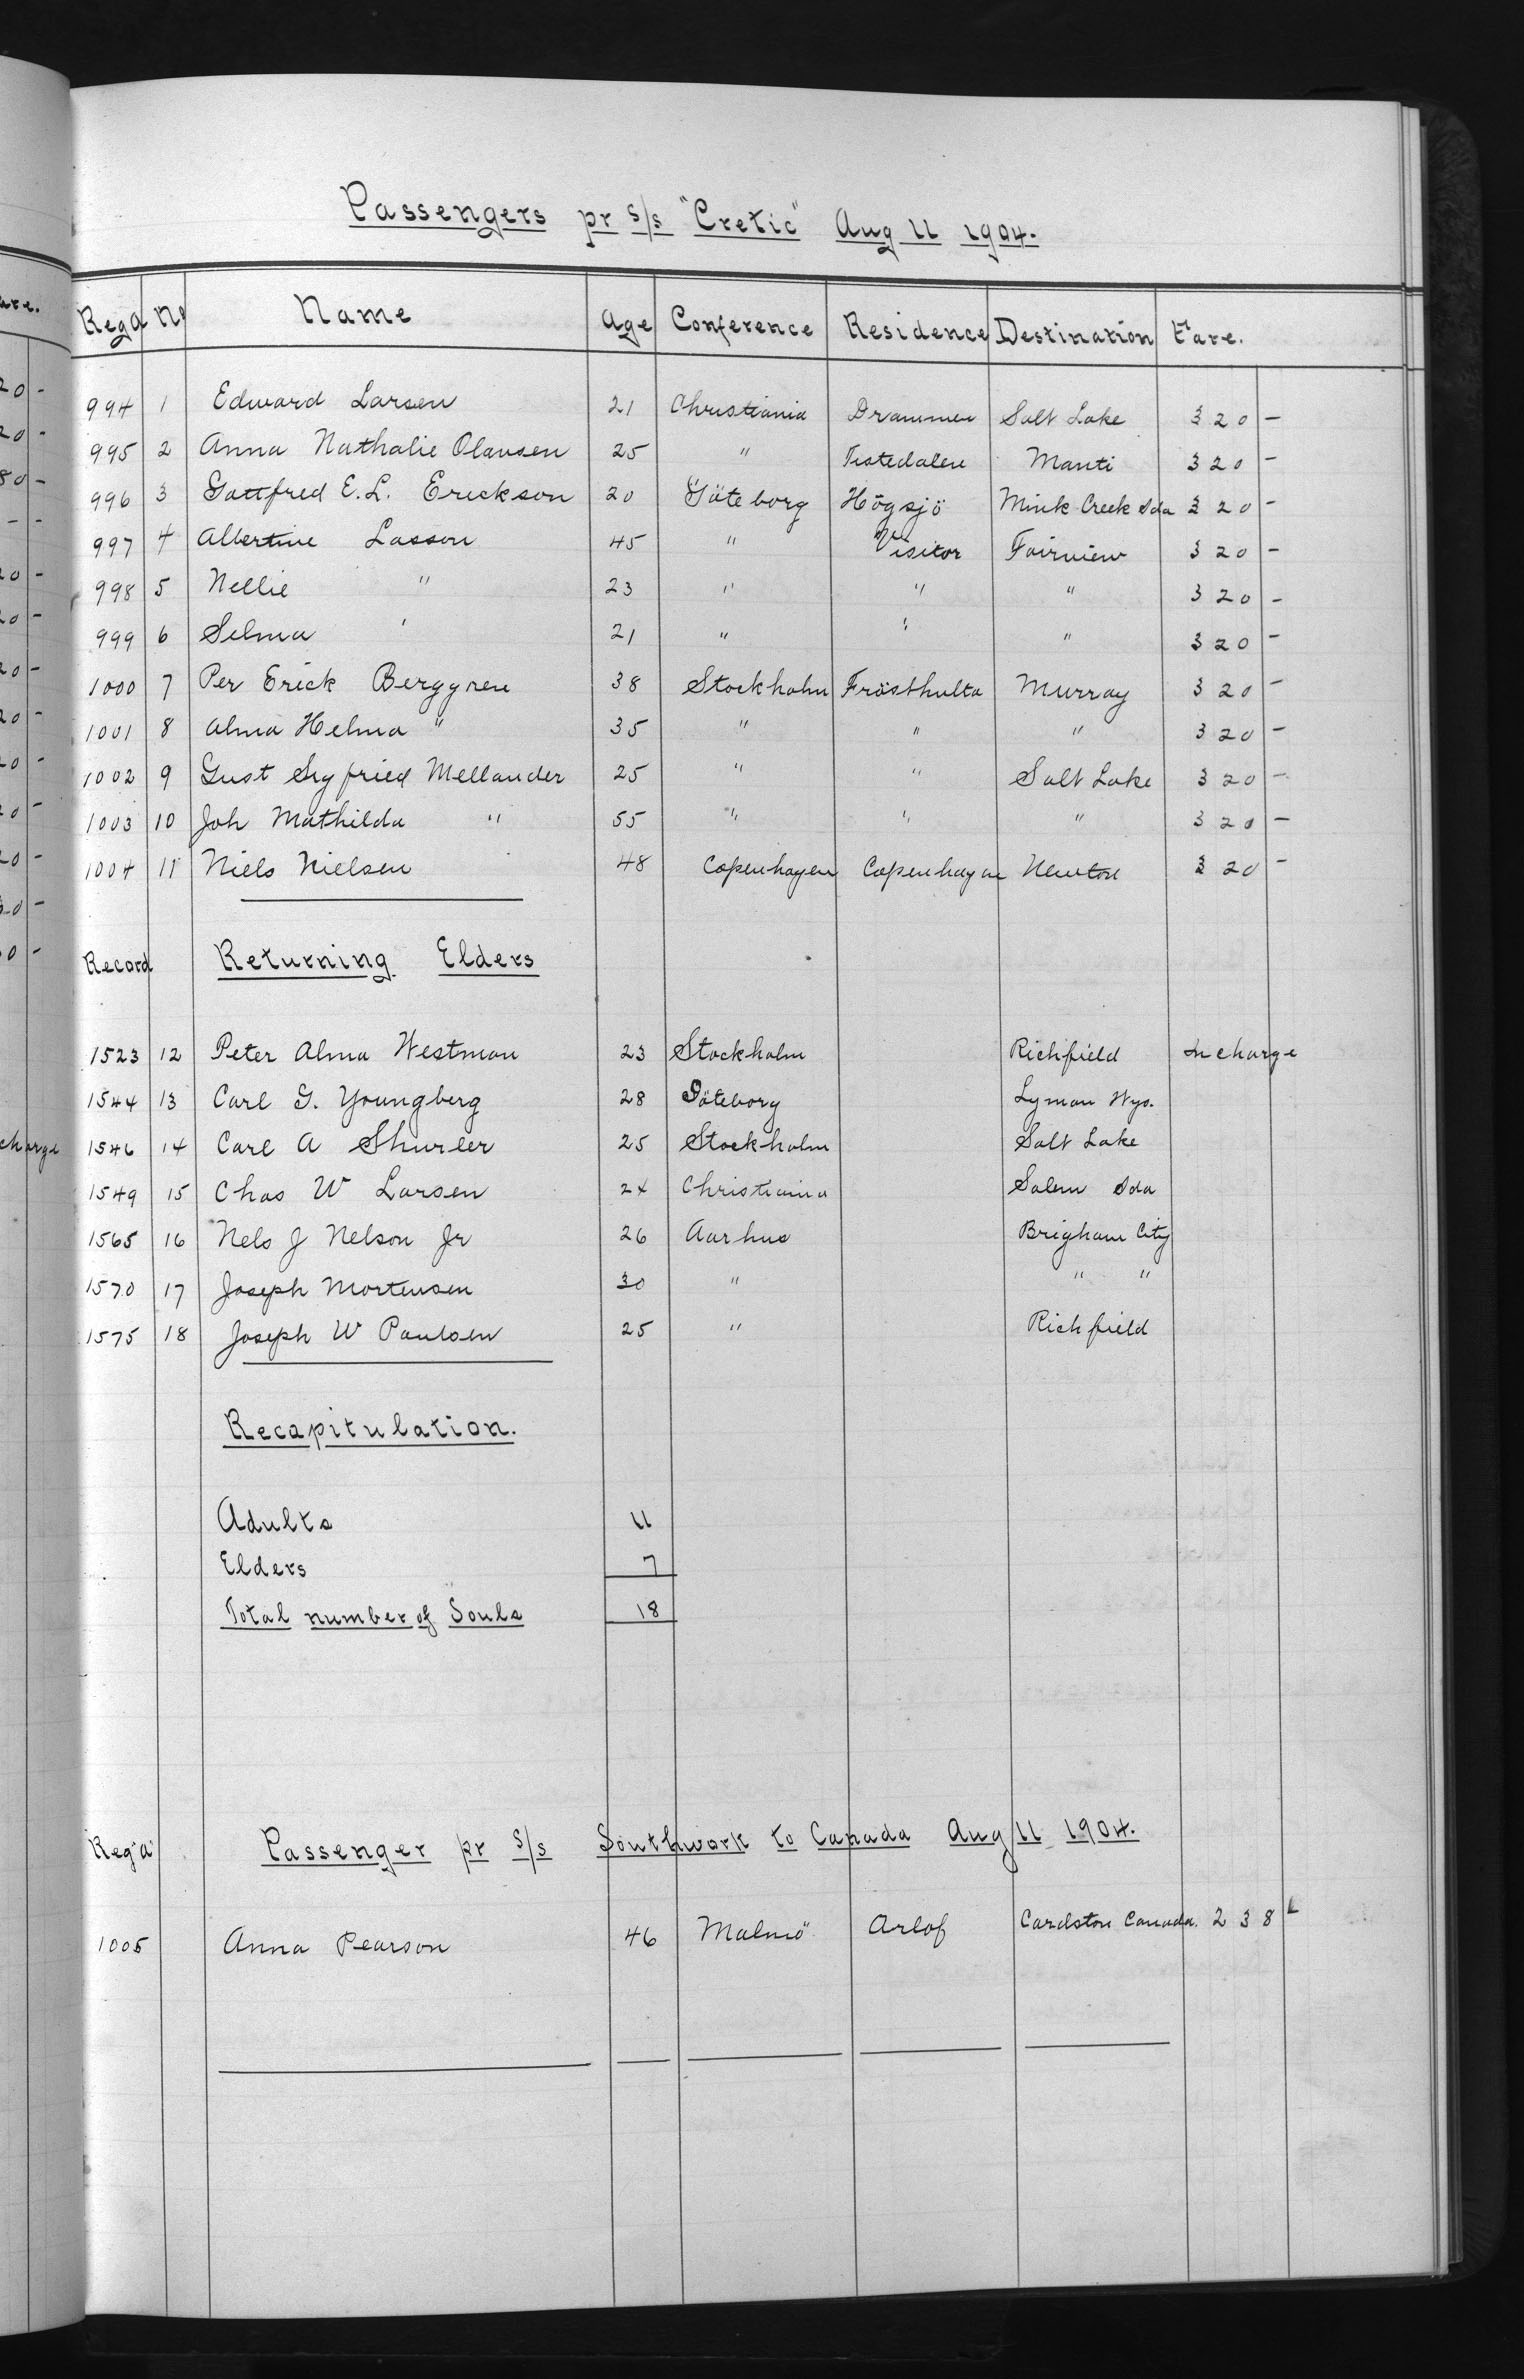 Passengers pr s/s "Cretic" Aug 11 1904.
Regd No Name Age Conference Residence Destination Fare.
994 1 Edward Larsen 21 Christiania Drammen Salt Lake 320 -
995 2 Anna Nathalie Olausen 25 " Tistedalen Manti 320 -
996 3 Gottfred E.L. Erickson 20 Göteborg Högsjö Mink Creek Ida 320 -
997 4 Albertine Lasson 45 " Visitor Fairview 320 -
998 5 Nellie " 23 " " " 320 -
999 6 Selma " 21 " " " 320 -
1000 7 Per Erick Berggren 38 Stockholm Frösthulta Murray 320 -
1001 8 Alma Helma " 35 " " " 320 -
1002 9 Gust Sigfried Mellander 25 " " Salt Lake 320 -
1003 10 Joh Mathilda " 55 " " " 320 -
1004 11 Niels Nielsen 48 Copenhagen Copenhagen Newton 320 -
Record Returning Elders
1523 12 Peter Alma Westman 23 Stockholm Richfield In charge
1544 13 Carl G. Youngberg 28 Göteborg Lyman Wyo.
1546 14 Carl A Shurler 25 Stockholm Salt Lake
1549 15 Chas W Larsen 24 Christiania Salem Ida
1565 16 Nels J Nelson Jr 26 Aarhus Brigham City
1570 17 Joseph Mortensen 30 " " "
1575 18 Joseph W Paulsen 25 " Richfield
Recapitulation.
Adults 11
Elders 7
Total number of Souls 18
Reg'd Passenger pr s/s Southwark to Canada Aug 11 1904.
1005 Anna Pearson 46 Malmö Arlof Cardston Canada. 238